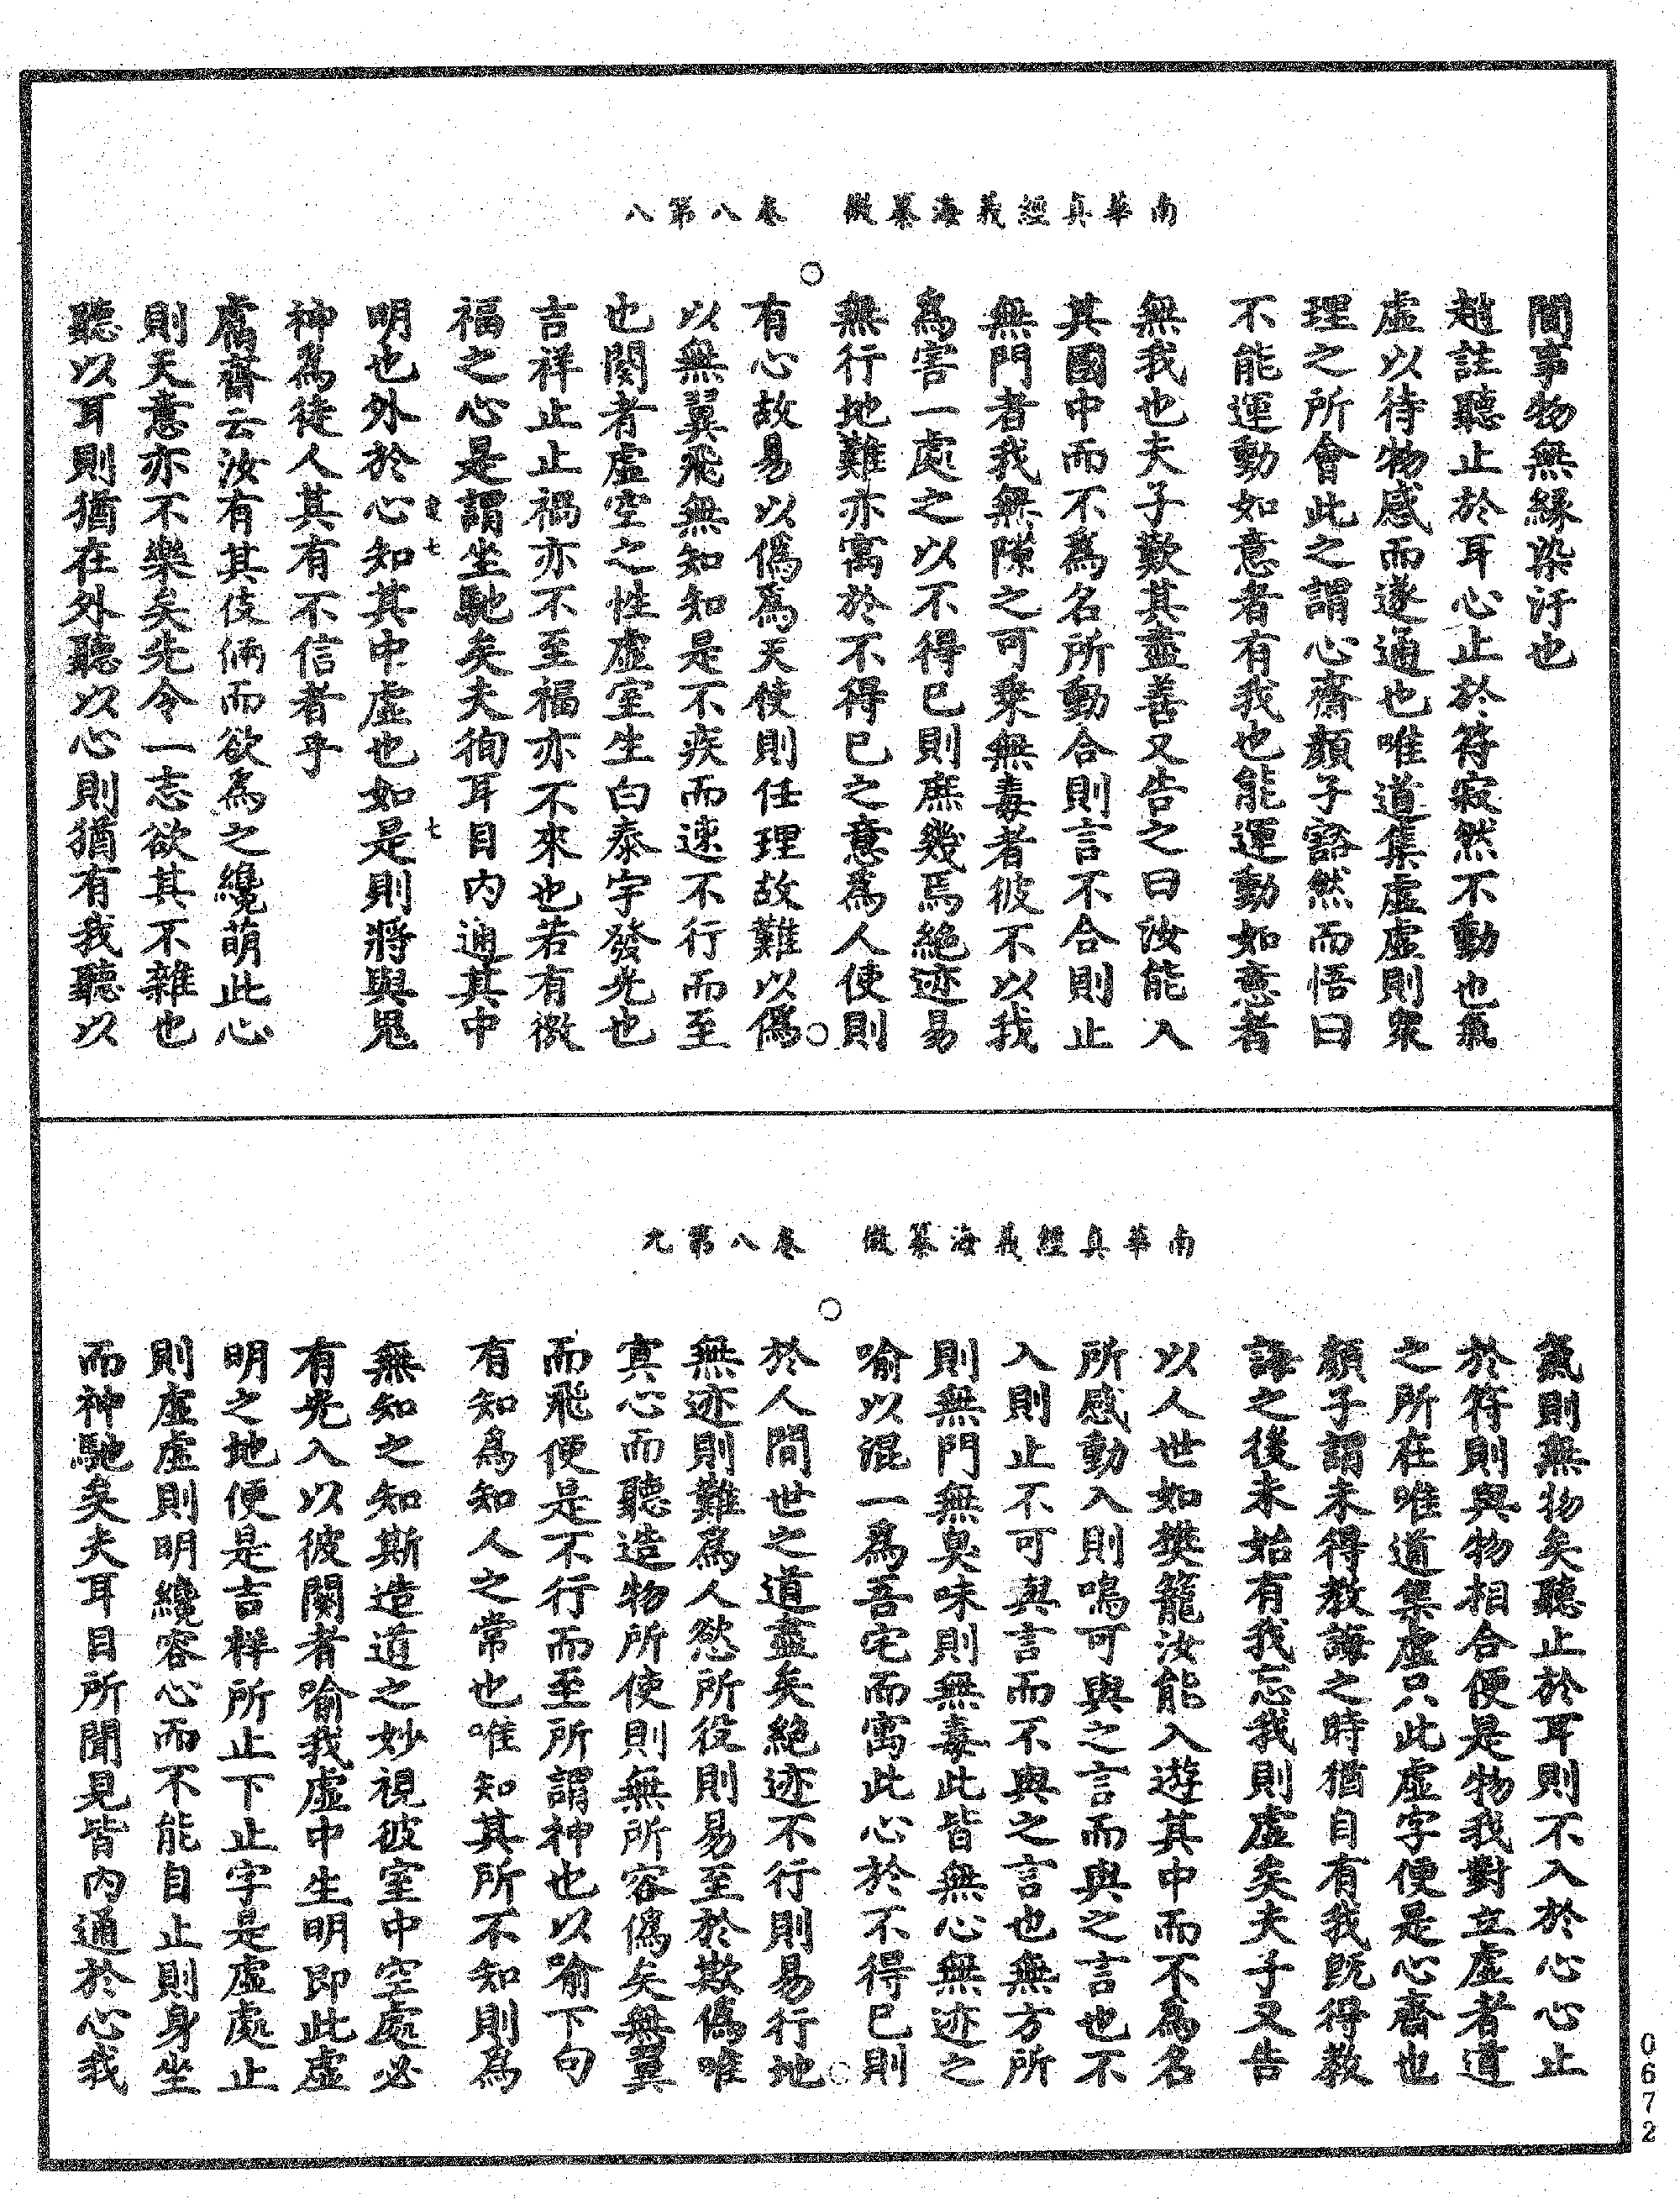 南華真經義海纂微　卷八第八
間事物無緣染汙也
趙註聽止於耳心止於符寂然不動也氣
虛以待物感而遂通也唯道集虛虛則衆
理之所會此之謂心齋顏子豁然而悟曰
不能運動如意者有我也能運動如意者
無我也夫子歎其盡善又告之曰汝能入
其國中而不為名所動合則言不合則止
無門者我無隙之可乘無毒者彼不以我
為害一處之以不得已則庶幾焉絕迹易
無行地難亦寓於不得已之意為人使則
有心故易以偽為天使則任理故難以偽
以無翼飛無知知是不疾而速不行而至
也闋者虛空之性虛室生白泰宇發光也
吉祥止止禍亦不至福亦不來也若有徼
福之心是謂坐馳矣夫徇耳目內通其中
明也外於心知其中虛也如是則將與鬼
神為徒人其有不信者乎
鬳齋云汝有其伎倆而欲為之纔萌此心
則天意亦不樂矣先令一志欲其不雜也
聽以耳則猶在外聽以心則猶有我聽以
南華真經義海纂微　卷八第九
氣則無物矣聽止於耳則不入於心心止
於符則與物相合便是物我對立虛者道
之所在唯道集虛只此虛字便是心齋也
顏子謂未得教誨之時猶自有我既得教
誨之後未始有我忘我則虛矣夫子又告
以人世如樊籠汝能入遊其中而不為名
所感動入則鳴可與之言而與之言也不
入則止不可與言而不與之言也無方所
則無門無臭味則無毒此皆無心無迹之
喻以混一為吾宅而寓此心於不得已則
於人間世之道盡矣絕迹不行則易行地
無迹則難為人慾所役則易至於欺偽唯
冥心而聽造物所使則無所容偽矣無翼
而飛便是不行而至所謂神也以喻下句
有知為知人之常也唯知其所不知則為
無知之知斯造道之妙視彼室中空處必
有光入以彼闋者喻我虛中生明即此虛
明之地便是吉祥所止下止字是虛處止
則虛虛則明纔容心而不能自止則身坐
而神馳矣夫耳目所聞見皆內通於心我
0672